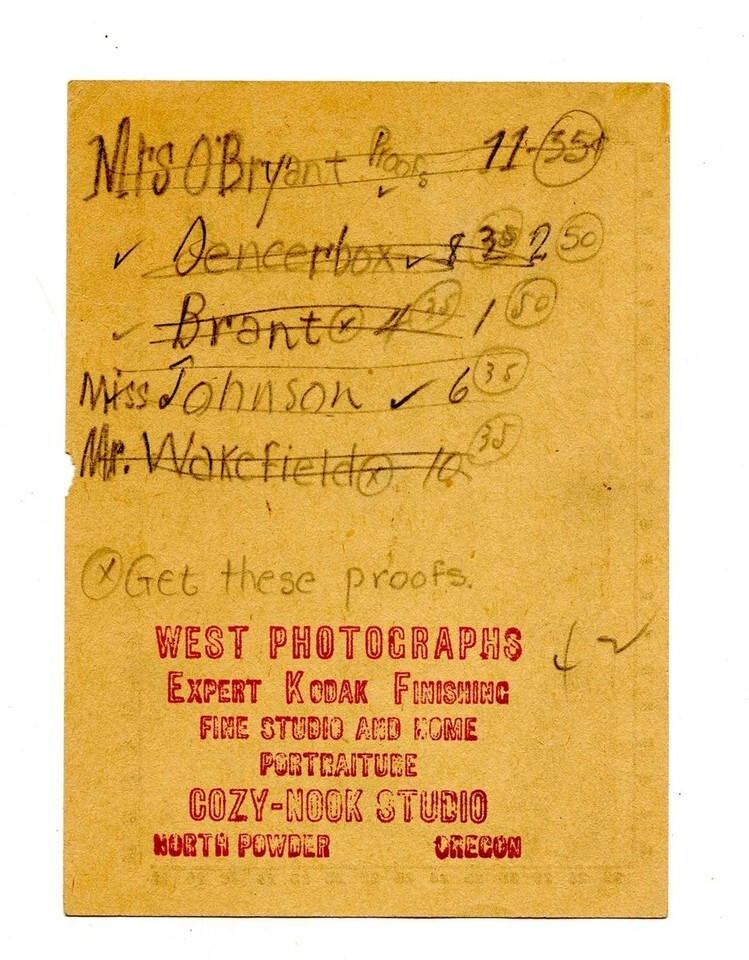 Mrs O'Bryant Proofs ✓ 11 - 35¢
✓ Dencerbox ✓ 8 35 2 50
✓ Brant x 4 35 1 50
Miss Johnson ✓ 6 35
Mr. Wakefield x 10 35
x Get these proofs.
WEST PHOTOGRAPHS
EXPERT KODAK FINISHING
FINE STUDIO AND HOME
PORTRAITURE
COZY-NOOK STUDIO
NORTH POWDER OREGON